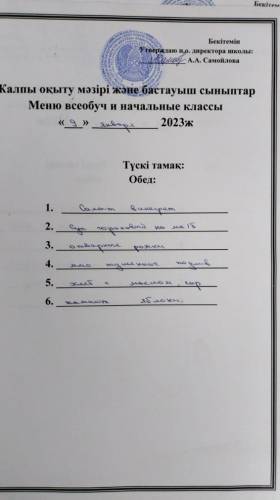 Бекітемін
Утверждаю и.о. директора школы:
А.А. Самойлова
Жалпы оқыту мәзірі және бастауыш сыныптар
Меню всеобуч и начальные классы
« 9 » января 2023ж
Түскі тамақ:
Обед:
1. Салат винегрет
2. Суп гороховый на м/б
3. отварные рожки
4. мясо тушенное подлив
5. хлеб с маслом, сыр
6. компот яблоки